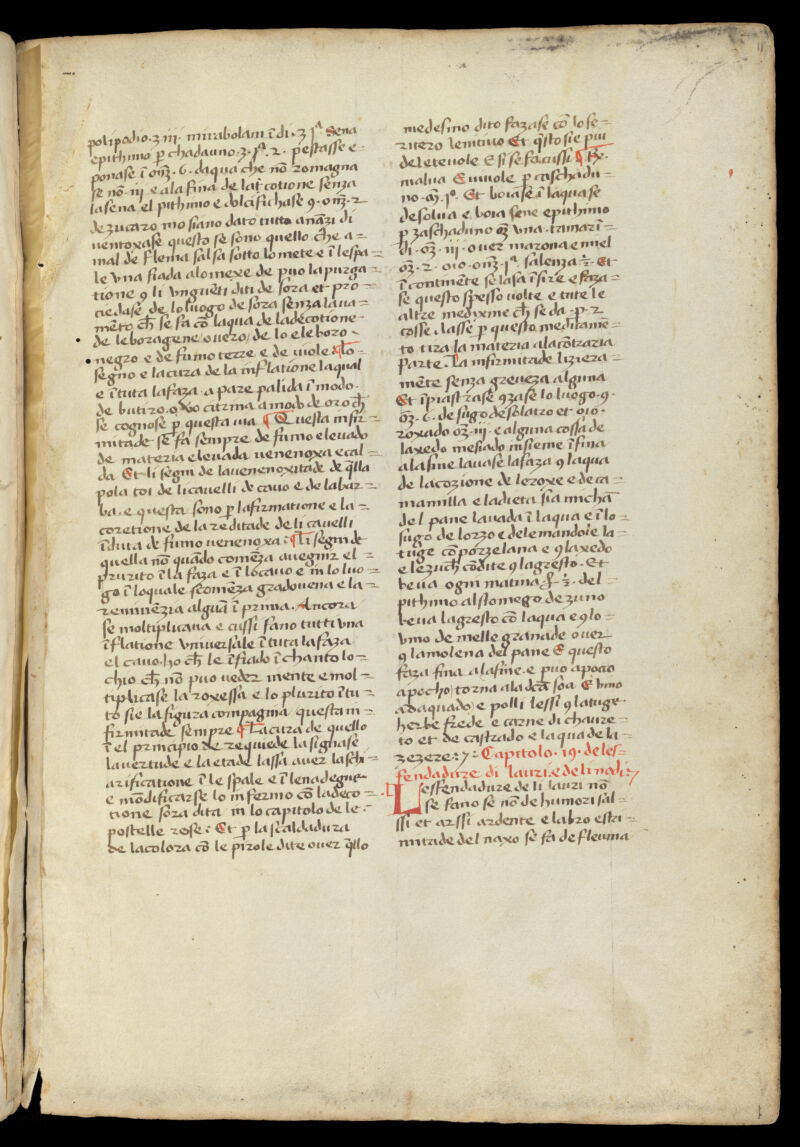 polipodio. ʒ iii. mirabolani īdi. ʒ jª. Sena
epithimo p chadauno. ʒ. jª. 2. pestasse e
ponase ī onʒ. 6. daqua che nō romagna
se nō. iii. e ala fina de la cotione senza
lasena el pithimo e dolcifichase 9. onʒ. 2
de zucaro mo siano dato tutto anāzi di
uentoxase questo se sono quello che a=
mal de flema salsa sotto lo mete e ī le spa=
le vna fiada alo mexe de puo la purga=
tione 9 li vnguēti diti de sora et pro=
ciedase de lo luogo de sora senza laua=
mēto ch se fa cō laqua de la decotione
de le boragene ouero de lo eleboro=
negro e de fumo terre e de uiole ¶ Lo=
segno e la cura de la inflatione la qual
e ī tuta la faza. a pare palida ī modo.
de butiro. o uero citrina a modo de oro ch
se cognose p questa uia ¶ Questa infir=
mitade se fa sempre de fumo eleuado
de materia eleuada uenenoxa e cal=
da Et li segni de la uenenoxitade de qlla
pola toi de li cauelli de cauo e de la bar=
ba. e questa sono p la firmatione e la=
coretione de la reditade de li cauelli
īduta de fumo uenenoxa: ¶ Li segni de
quella nō quādo comēza auegnir el=
prurito ī la faza e ī lo cauo e in lo luo=
go ī loquale scomēza gradouena e la=
reminēzia alguā ī prima. Ancora
se moltiplicaua e cussi fano tutti vna
īflatione vniuersale ī tuta la faza
el cauo. ho ch le īfiado ī chanto lo=
chio ch nō puo ueder niente e mol=
tiplicase la roxessa e lo plurito ī tu=
to sie la figura compagnia questa in=
firmitade sempre ¶ La cura de quello
ī el principio de requiede la signase
la uertude e la etade lassa auer la schi=
arificatione ī le spale e ī lena de gua=
e mōdificarse lo infermo cō ladeco=
tione sora dita in lo capitolo de le=
postelle rose: Et p la scaldadura
de lacolora cō le pirole dite ouer qllo
medesmo dito fazase cō lo se=
ritero lenitiuo Et qsto sie piu
deleteuole E si se fa cussi ¶ Re.
malua E uiuole p caschadu=
no. m̄. jº. Et boiase ī laqua se
desolua e boia sene epithimo
p zaschaduno oʒ vna. tamarī=
di. oʒ. iii. ouer marona e miel
oʒ. 2. oio. onʒ. jª. salenza ½. Et
ī continēte se lasa īsire e faza=
se questo spesso uolte e tute le
altre medixime ch se da. p. 2
cosse. lasse p questo medicame=
to tira la materia ala cōtrazia
parte. La infirmitade liziera=
mēte senza greueza alguna
Et īpiastrase 9zase lo luogo. 9.
oʒ. 6. de sugo de solatro et oio.
roxado oʒ. iii. e alguna cossa de
laxedo mesiado insieme ī fina
ala fine. lauase la faza 9 laqua
de la cozione de le roxe e de ca=
mamilla e la dieta sia micha
del pane lauada ī laqua e ī lo=
sugo de lorzo e de le mandole la=
tuge cō porzelana e 9 laxedo
e le zuch cōdite 9 lagresto. Et
beua ogni matina ʒ ½. del=
pithimo al stomego de zuno
beua lagresto cō laqua e 9 lo=
vino de melle granade ouer
9 la molena del pane E questo
faza fina ala fine. e puo apoco
apocho torna ala dcā soa E vino
adaquado e polli lessi 9 latuge=
herbe frede e carne di chaure=
to et de castrado e laqua de li
zezere: 7: Capitolo. 19. de les=
fendadure di lauri. e de li nodi: 7
Le sfendadure de li lauri nō
se fano se nō de humori sal=
ssi et arssi ardente e labro esta=
mitade del naxo se fa de fleuma